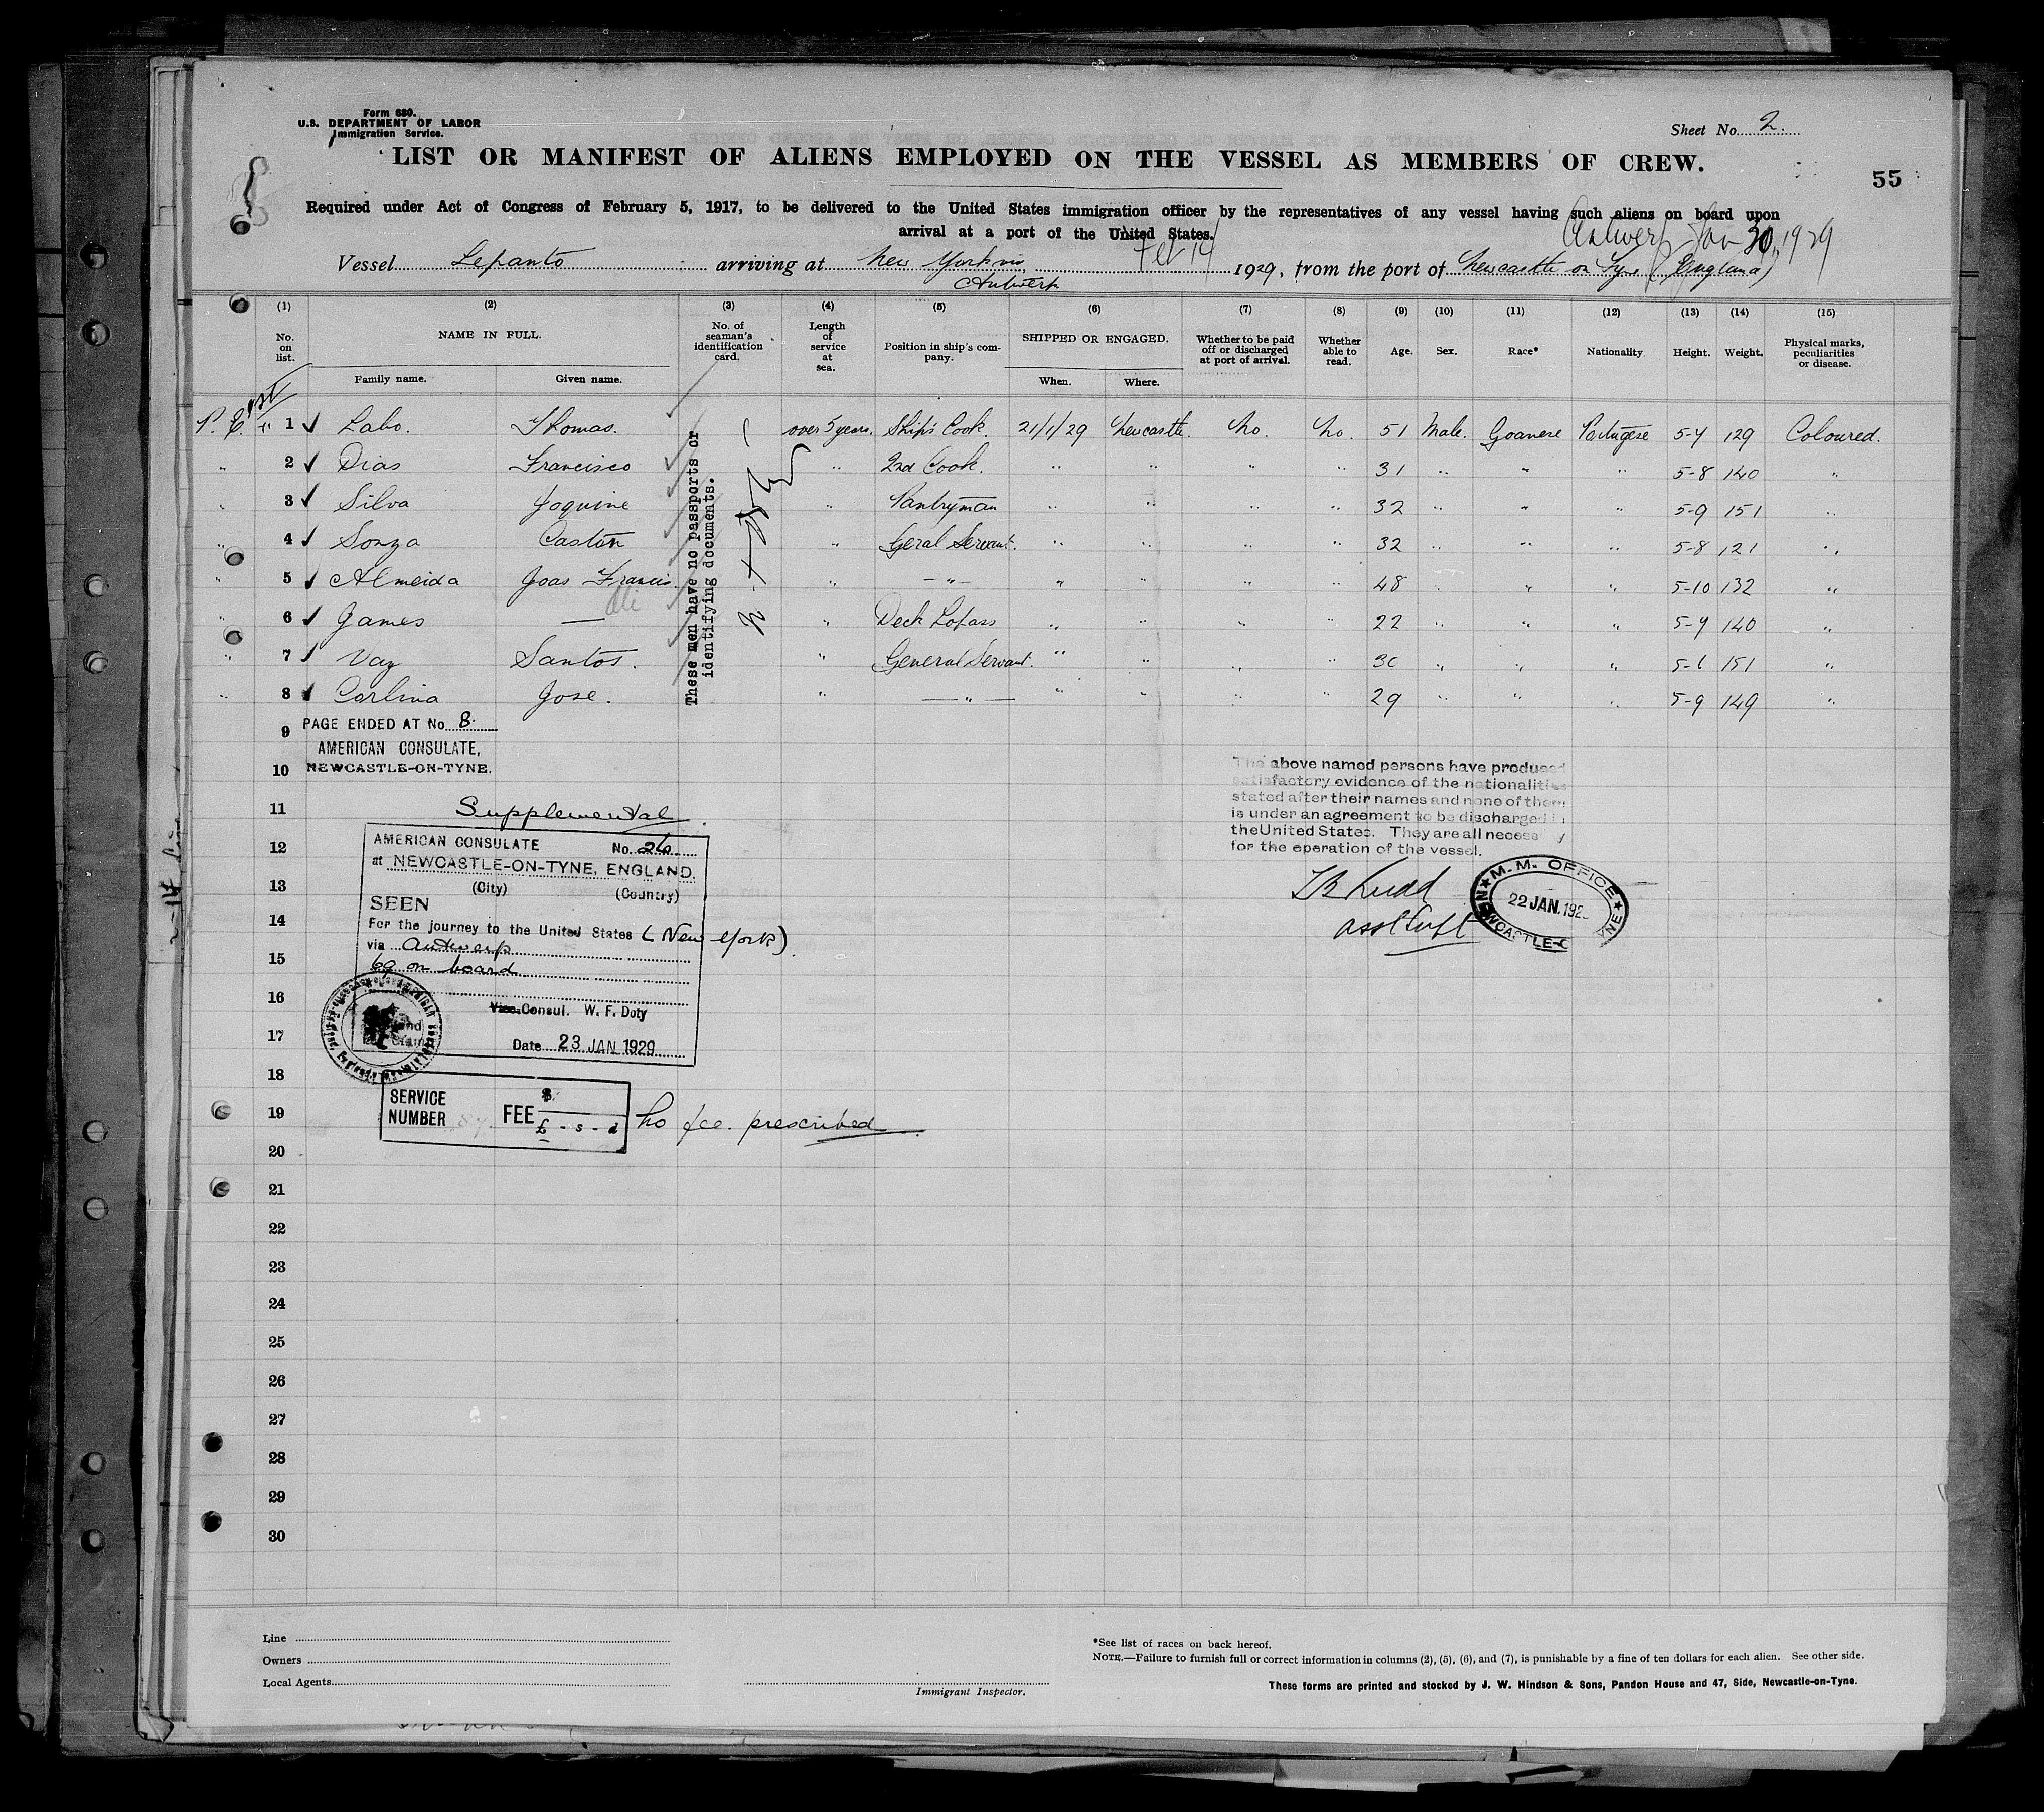 Form 680.
U.S. DEPARTMENT OF LABOR
Immigration Service.
Sheet No. 2.
LIST OR MANIFEST OF ALIENS EMPLOYED ON THE VESSEL AS MEMBERS OF CREW.
55
Required under Act of Congress of February 5, 1917, to be delivered to the United States immigration officer by the representatives of any vessel having such aliens on board upon
arrival at a port of the United States.
Antwerp Jan 30, 1929
Vessel Lepanto arriving at New York via Feb 14 1929, from the port of Newcastle on Tyne (England)
Antwerp
(1) (2) (3) (4) (5) (6) (7) (8) (9) (10) (11) (12) (13) (14) (15)
No. on list. NAME IN FULL. No. of seaman's identification card. Length of service at sea. Position in ship's company. SHIPPED OR ENGAGED. Whether to be paid off or discharged at port of arrival. Whether able to read. Age. Sex. Race* Nationality Height. Weight. Physical marks, peculiarities or disease.
Family name. Given name. When. Where.
P.E. 1st
1 Labo. Thomas. over 5 years. Ship's Cook. 21/1/29 Newcastle. No. No. 51 Male. Goanese Portugese 5-4 129 Coloured.
2 Dias Francisco " 2nd Cook. " " " " 31 " " " 5-8 140 "
3 Silva Joquine " Pantryman " " " " 32 " " " 5-9 151 "
4 Sonza Castan " Geral Servant. " " " " 32 " " " 5-8 121 "
5 Almeida Joas Francis. " - " - " " " " 48 " " " 5-10 132 "
6 James — " Deck Topass " " " " 22 " " " 5-4 140 "
7 Vaz Santos. " General Servant. " " " " 30 " " " 5-6 151 "
8 Carlina Jose. " — " — " " " " 29 " " " 5-9 149 "
These men have no passports or
identifying documents.
9 PAGE ENDED AT No. 8.
AMERICAN CONSULATE,
10 NEWCASTLE-ON-TYNE.
The above named persons have produced
satisfactory evidence of the nationalities
stated after their names and none of them
is under an agreement to be discharged in
the United States. They are all necessary
for the operation of the vessel.
11 Supplemental
12 AMERICAN CONSULATE No. 26
at NEWCASTLE-ON-TYNE, ENGLAND.
13 (City) (Country)
SEEN
14 For the journey to the United States (New York).
via Antwerp
15 69 on board
16
Vice Consul. W. F. Doty
17 Date 23 JAN 1929
M. M. OFFICE
22 JAN. 192
18
SERVICE NUMBER FEE $ £ - s - d
19 No fee prescribed
20
21
22
23
24
25
26
27
28
29
30
Line
Owners
Local Agents
Immigrant Inspector.
*See list of races on back hereof.
NOTE.—Failure to furnish full or correct information in columns (2), (5), (6), and (7), is punishable by a fine of ten dollars for each alien. See other side.
These forms are printed and stocked by J. W. Hindson & Sons, Pandon House and 47, Side, Newcastle-on-Tyne.